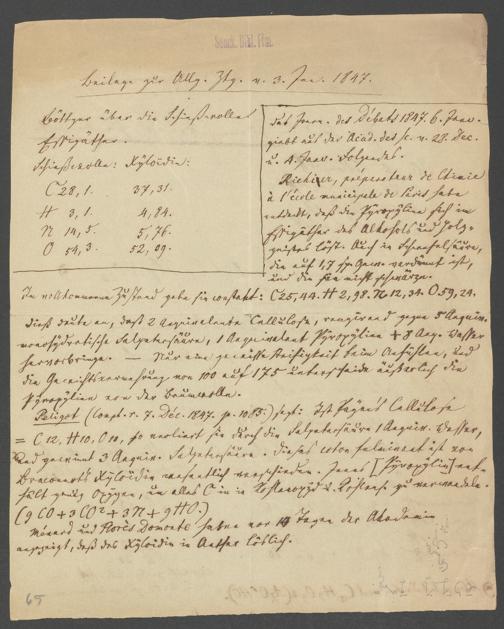 Senck. Bibl. Ffm.
Beilage zur Allg. Ztg. v. 3. Jan. 1847.
Böttger über die Schießwolle
Essigäther.
Schießwolle: Xyloidin:
C 28,1. 37,31.
H 3,1. 4,84.
N 14,5. 5,76.
O 54,3. 52,09.
Das Journ. des Débats 1847. 6. Janv.
giebt aus der Acad. des sc. v. 28. Dec.
u. 4. Janv. Folgendes.
préparateur de Chimie
à l'école municipale de Paris habe
entdeckt, daß das Pyroxyline sich im
Essigäther des Alkohols und Holz-
löst. Auch in Schwefelsäure,
die auf 1,7 sp. Gew. verdünnt ist,
und die sie nicht schwärze.
Im vollkommenen Zustand gebe sie constant: C 25,44. H 2,98. N 12,34. O 59,24.
Dieß deute an, daß 2 Aequivalente Cellulose, reagirend gegen 5 Aequiv.
monohydratische Salpetersäure, 1 Aequivalent Pyroxyline + 3 Aeq. Wasser
hervorbringe. — Nur eine gewisse Steifigkeit beim Anfühlen, und
die Gewichtsvermehrung von 100 auf 175 unterscheide äußerlich die
Pyroxyline von der Baumwolle.
Peligot (Compt. r. 7. Dec. 184 . p. 1085.) sagt: Ist Payen's Cellulose
= C 12, H 10, O 10, so verliert sie durch die Salpetersäure 1 Aequiv. Wasser,
und gewinnt 3 Aequiv. Salpetersäure. Dieses coton fulminant ist von
Braconnot's Xyloidin wesentlich verschieden. Jenes [Pyroxylin] ent-
hält genug Oxygen, um alles C in Kohlenoxyd u. Kohlens. zu verwandeln.
(9 CO + 3 CO² + 3 N + 9 HO.)
Ménard und Flores Domonte haben vor 14 Tagen der Akademie
angezeigt, daß das Xyloidin in Aether löslich.
65